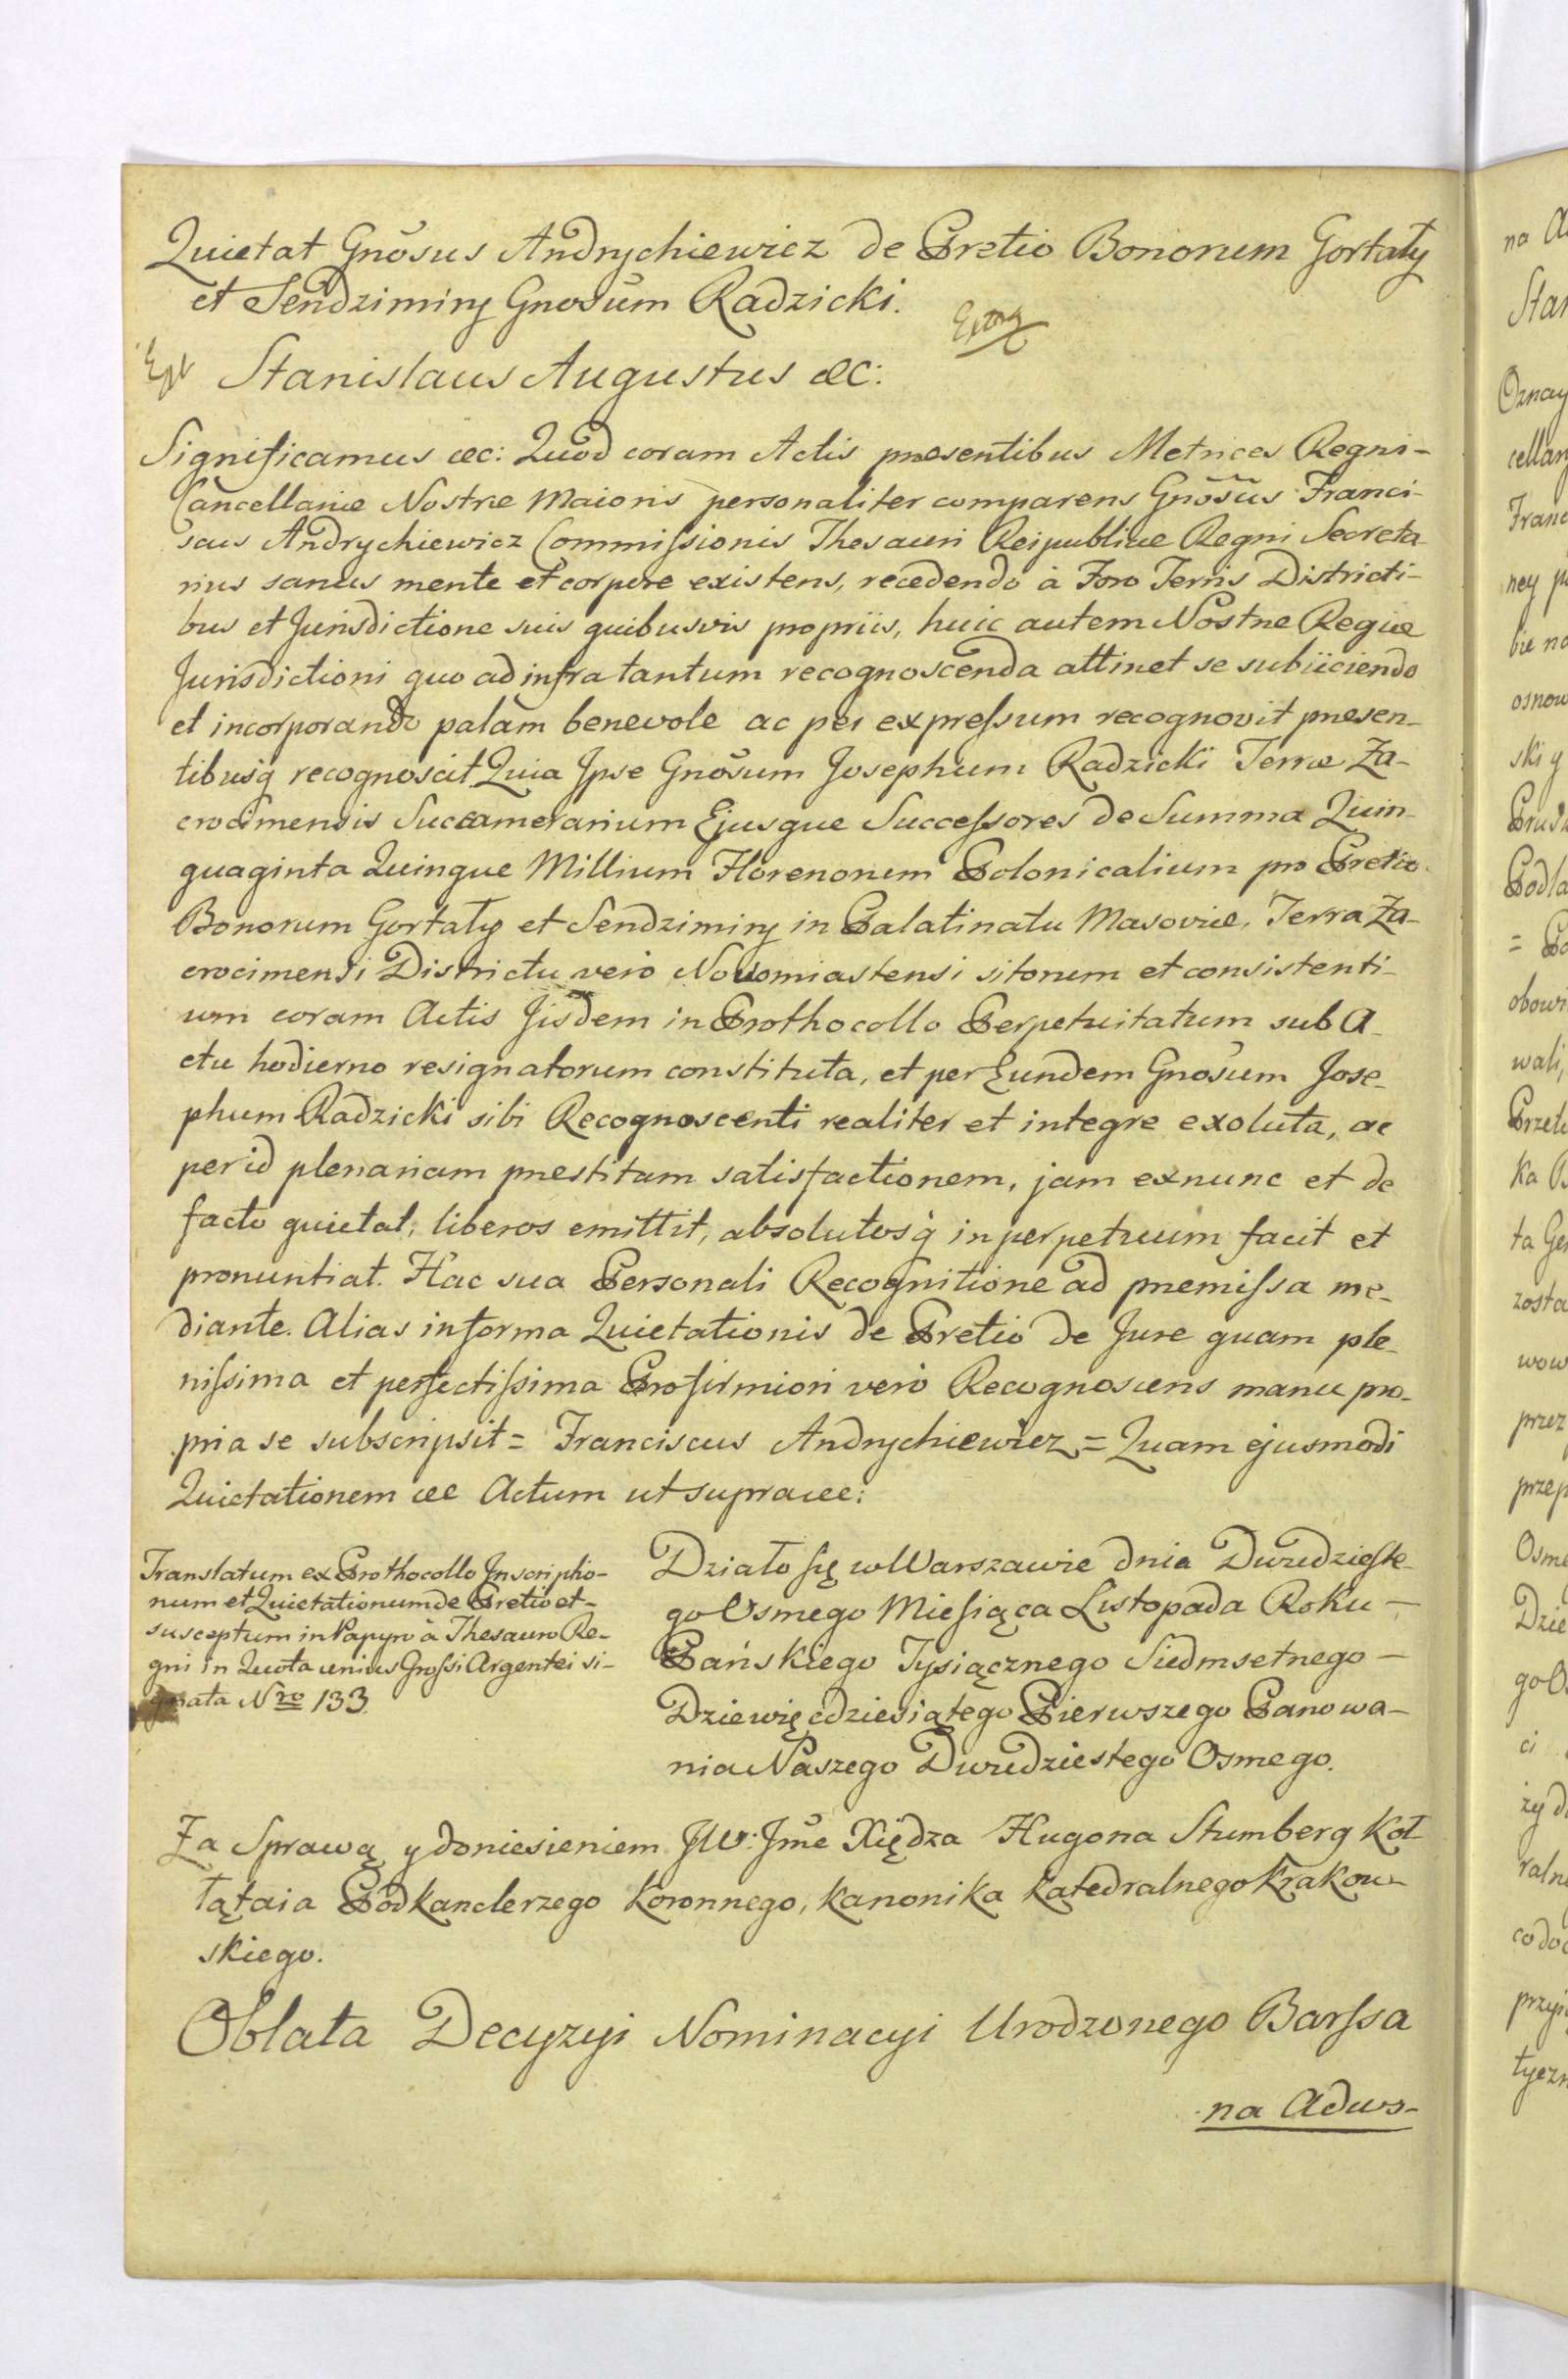 Quietat Gnõsus Andrychiewicz de Pretio Bonorum Gortaty
et Sendzimiry Gnosũm Radzicki.
Stanislaus Augustus &c:
Significamus &c: Quod coram Actis præsentibus Metrices Regni-
Cancellariæ Nostræ Maioris personaliter comparens Gnõsus Franci-
scus Andrychiewicz Commissionis Thesauri Reipublicæ Regni Secreta-
rius sanus mente et corpore existens, recedendo à Foro Terris Districti-
bus et Jurisdictione suis quibusvis propriis, huic autem Nostræ Regiæ
Jurisdictioni quo ad infra tantum recognoscenda attinet se subiiciendo
et incorporando palam benevole ac per expressum recognovit præsen-
tibusq̃ recognoscit Quia Ipse Gnõsum Josephum Radzicki Terræ Za-
crocimensis Succamerarium Ejusque Successores de Summa Quin-
quaginta Quinque Millium Florenorum Polonicalium pro Pretio
Bonorum Gortaty et Sendzimiry in Palatinatu Masoviæ, Terra Za-
crocimensi Districtu verò Novomiastensi sitorum et consistenti-
um coram Actis Iisdem in Prothocollo Perpetuitatum sub A-
ctu hodierno resignatorum constituta, et per Eundem Gnosũm Jose-
phum Radzicki sibi Recognoscenti realiter et integre exoluta, ac
per id plenariam præstitam satisfactionem, jam exnunc et de
facto quietat, liberos emittit, absolutosq̃ in perpetuum facit et
pronuntiat. Hac sua Personali Recognitione ad præmissa me-
diante. Alias in forma Quietationis de Pretio de Jure quam ple-
nissima et perfectissima Pro firmiori verò Recognoscens manu pro-
pria se subscripsit = Franciscus Andrychiewicz = Quam ejusmodi
Quietationem &c Actum ut supra &c:
Translatum ex Prothocollo Inscriptio-
num et Quietationum de Pretio et-
susceptum in Papyro à Thesauro Re-
gni in Quota unius Grossi Argentei si-
gnata Nro 133.
Działo się w Warszawie dnia Dwudzieste-
go Osmego Miesiąca Listopada Roku-
Pańskiego Tysiącznego Siedmsetnego-
Dziewięcdziesiątego Pierwszego Panowa-
nia Naszego Dwudziestego Osmego.
Za Sprawą y doniesieniem JW: Jmẽ Xiędza Hugona Stumberg Koł-
łątaia Podkanclerzego Koronnego, Kanonika Katedralnego Krakow-
skiego.
Oblata Decyzyi Nominacyi Urodzonego Barssa
na Adwo-